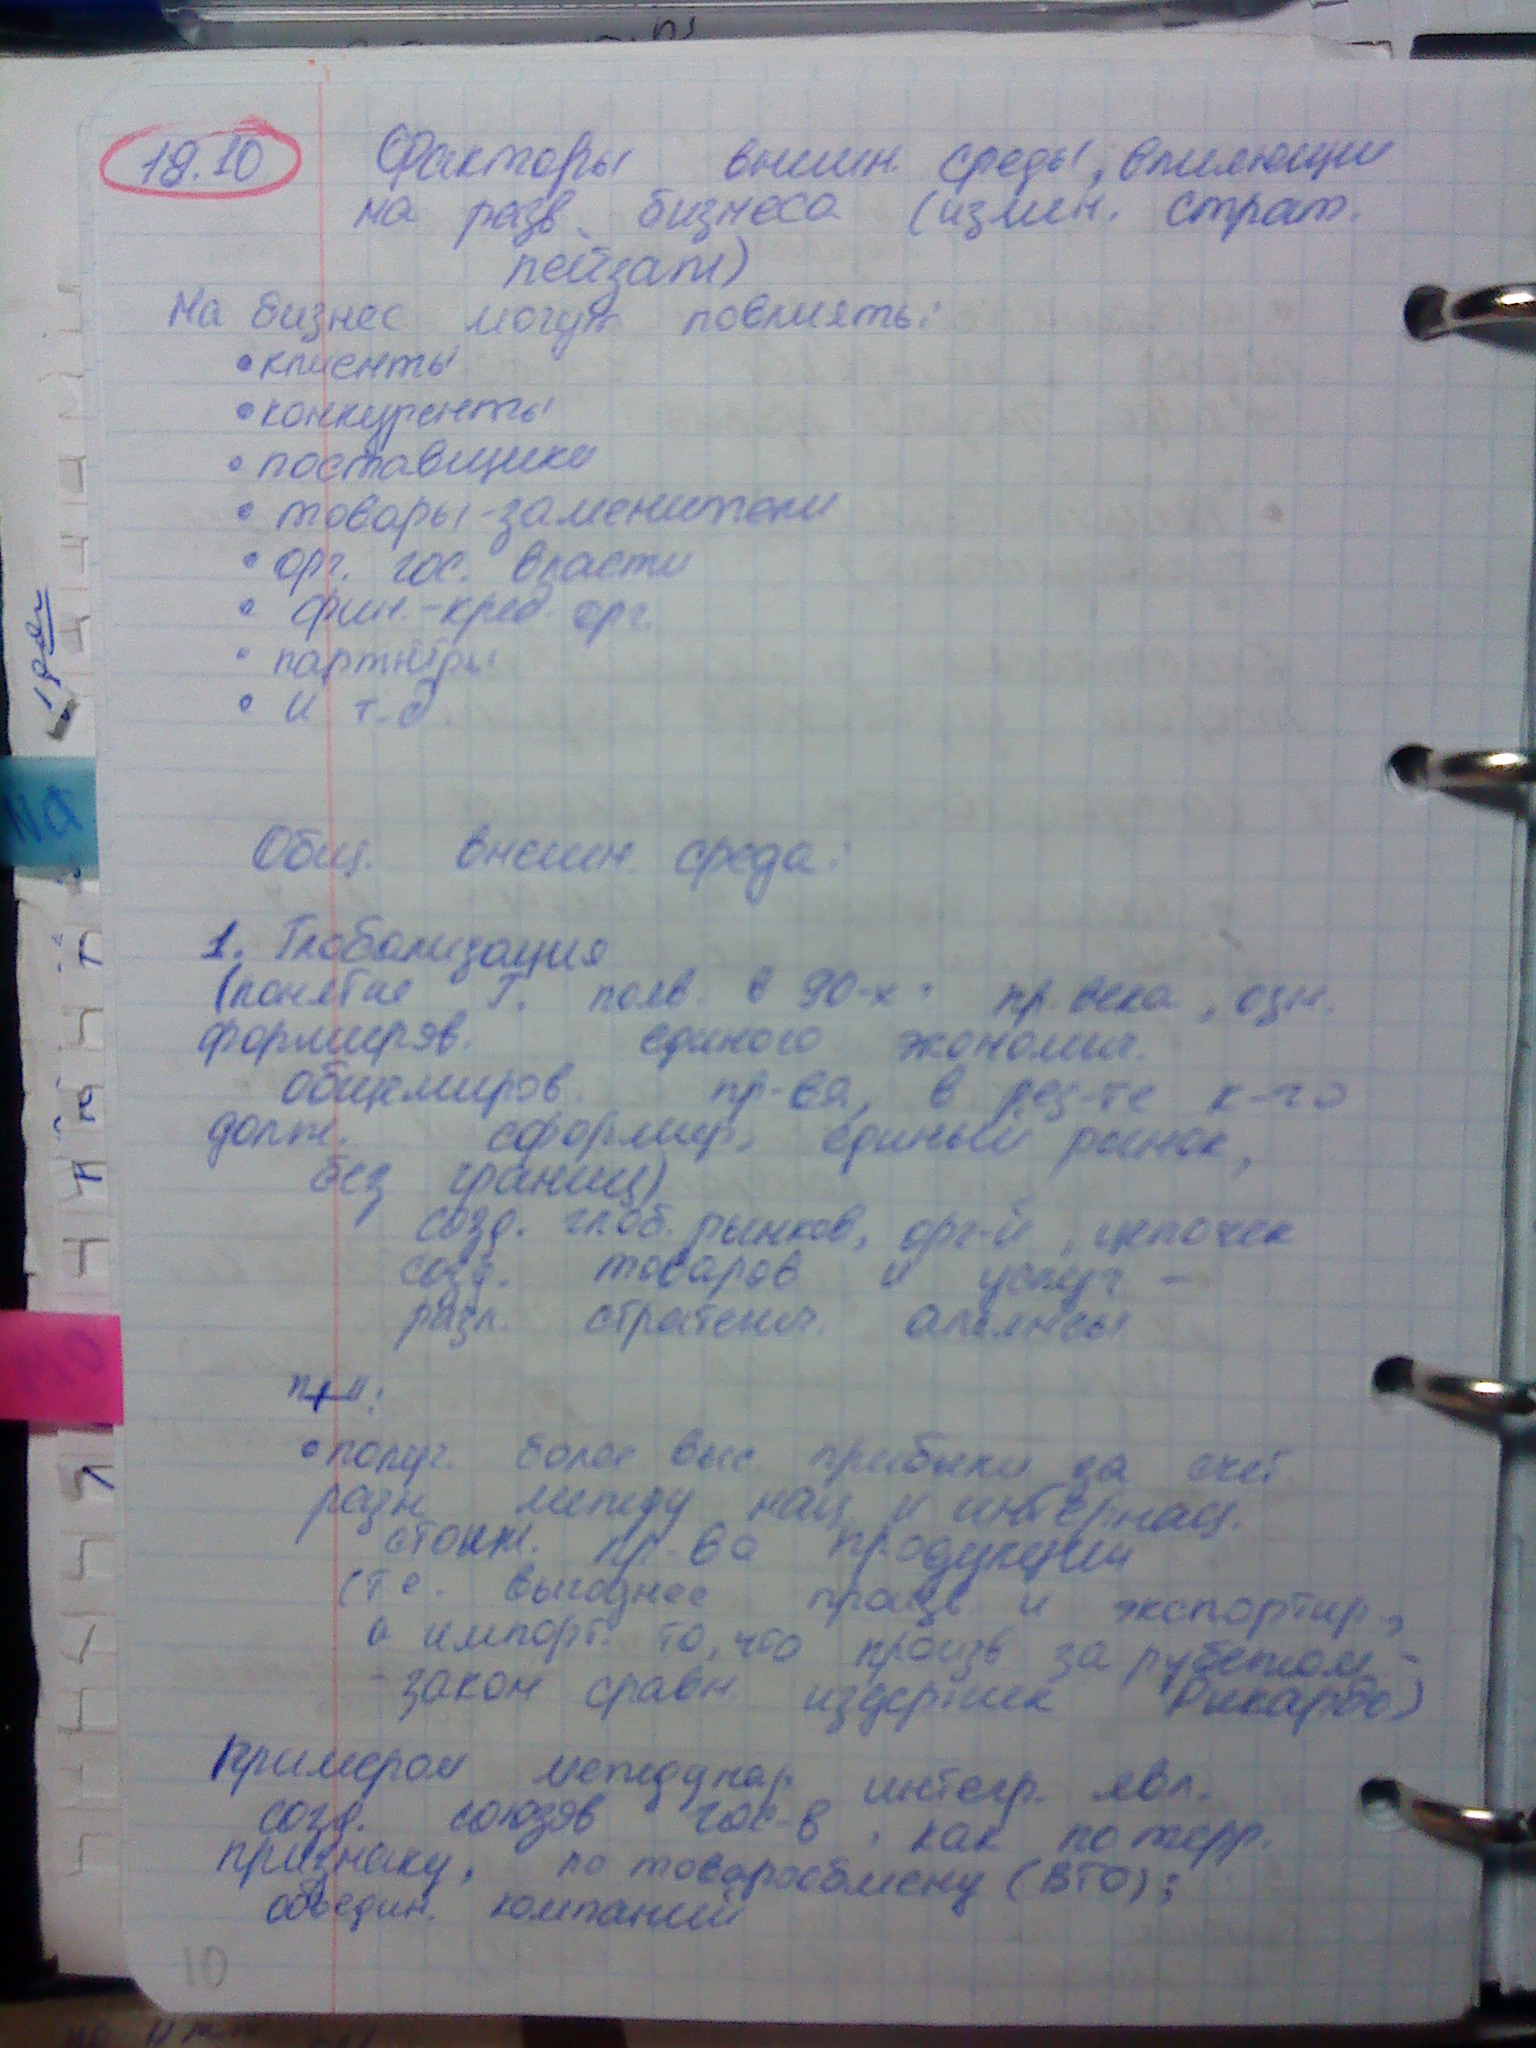 18.10 Факторы внешн. среды, влияющие
на разв. бизнеса (измен. страт.
пейзаж)
На бизнес могут повлиять:
• клиенты
• конкуренты
• поставщики
• товары-заменители
• орг. гос. власти
• фин.-кред. орг.
• партнёры
• и т.д
Общ. внешн. среда:
1. Глобализация
(понятие Г. появ. в 90-х пр. века, озн.
формиров. единого экономич.
общемиров. пр-ва, в рез-те к-го
долж. сформир. единый рынок,
без границ)
созд. глоб. рынков, орг-й, цепочек
созд. товаров и услуг -
разл. стратегич. альянсы
"+":
• получ. более выс. прибыли за счёт
разн между нац и интернац.
стоим. пр-ва продукции
(т.е. выгоднее произв. и экспортир.,
а импорт. то, что произв за рубежом -
- закон сравн. издержек Рикардо)
Примером междунар. интегр. явл.
созд. союзов гос-в, как по терр.
признаку, по товарообмену (ВТО);
объедин. компаний
10